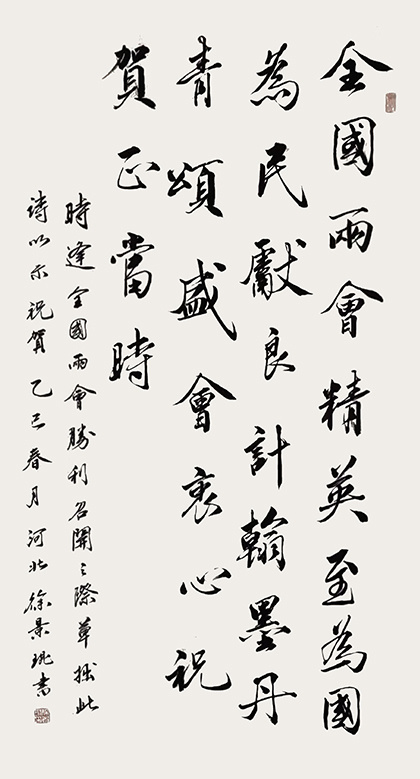 全國兩會精英至為國
為民獻良計翰墨丹
青頌盛會衷心祝
賀正當時
時逢全國兩會勝利召開之際草拙此
詩以示祝賀乙巳春月河北徐景珧書